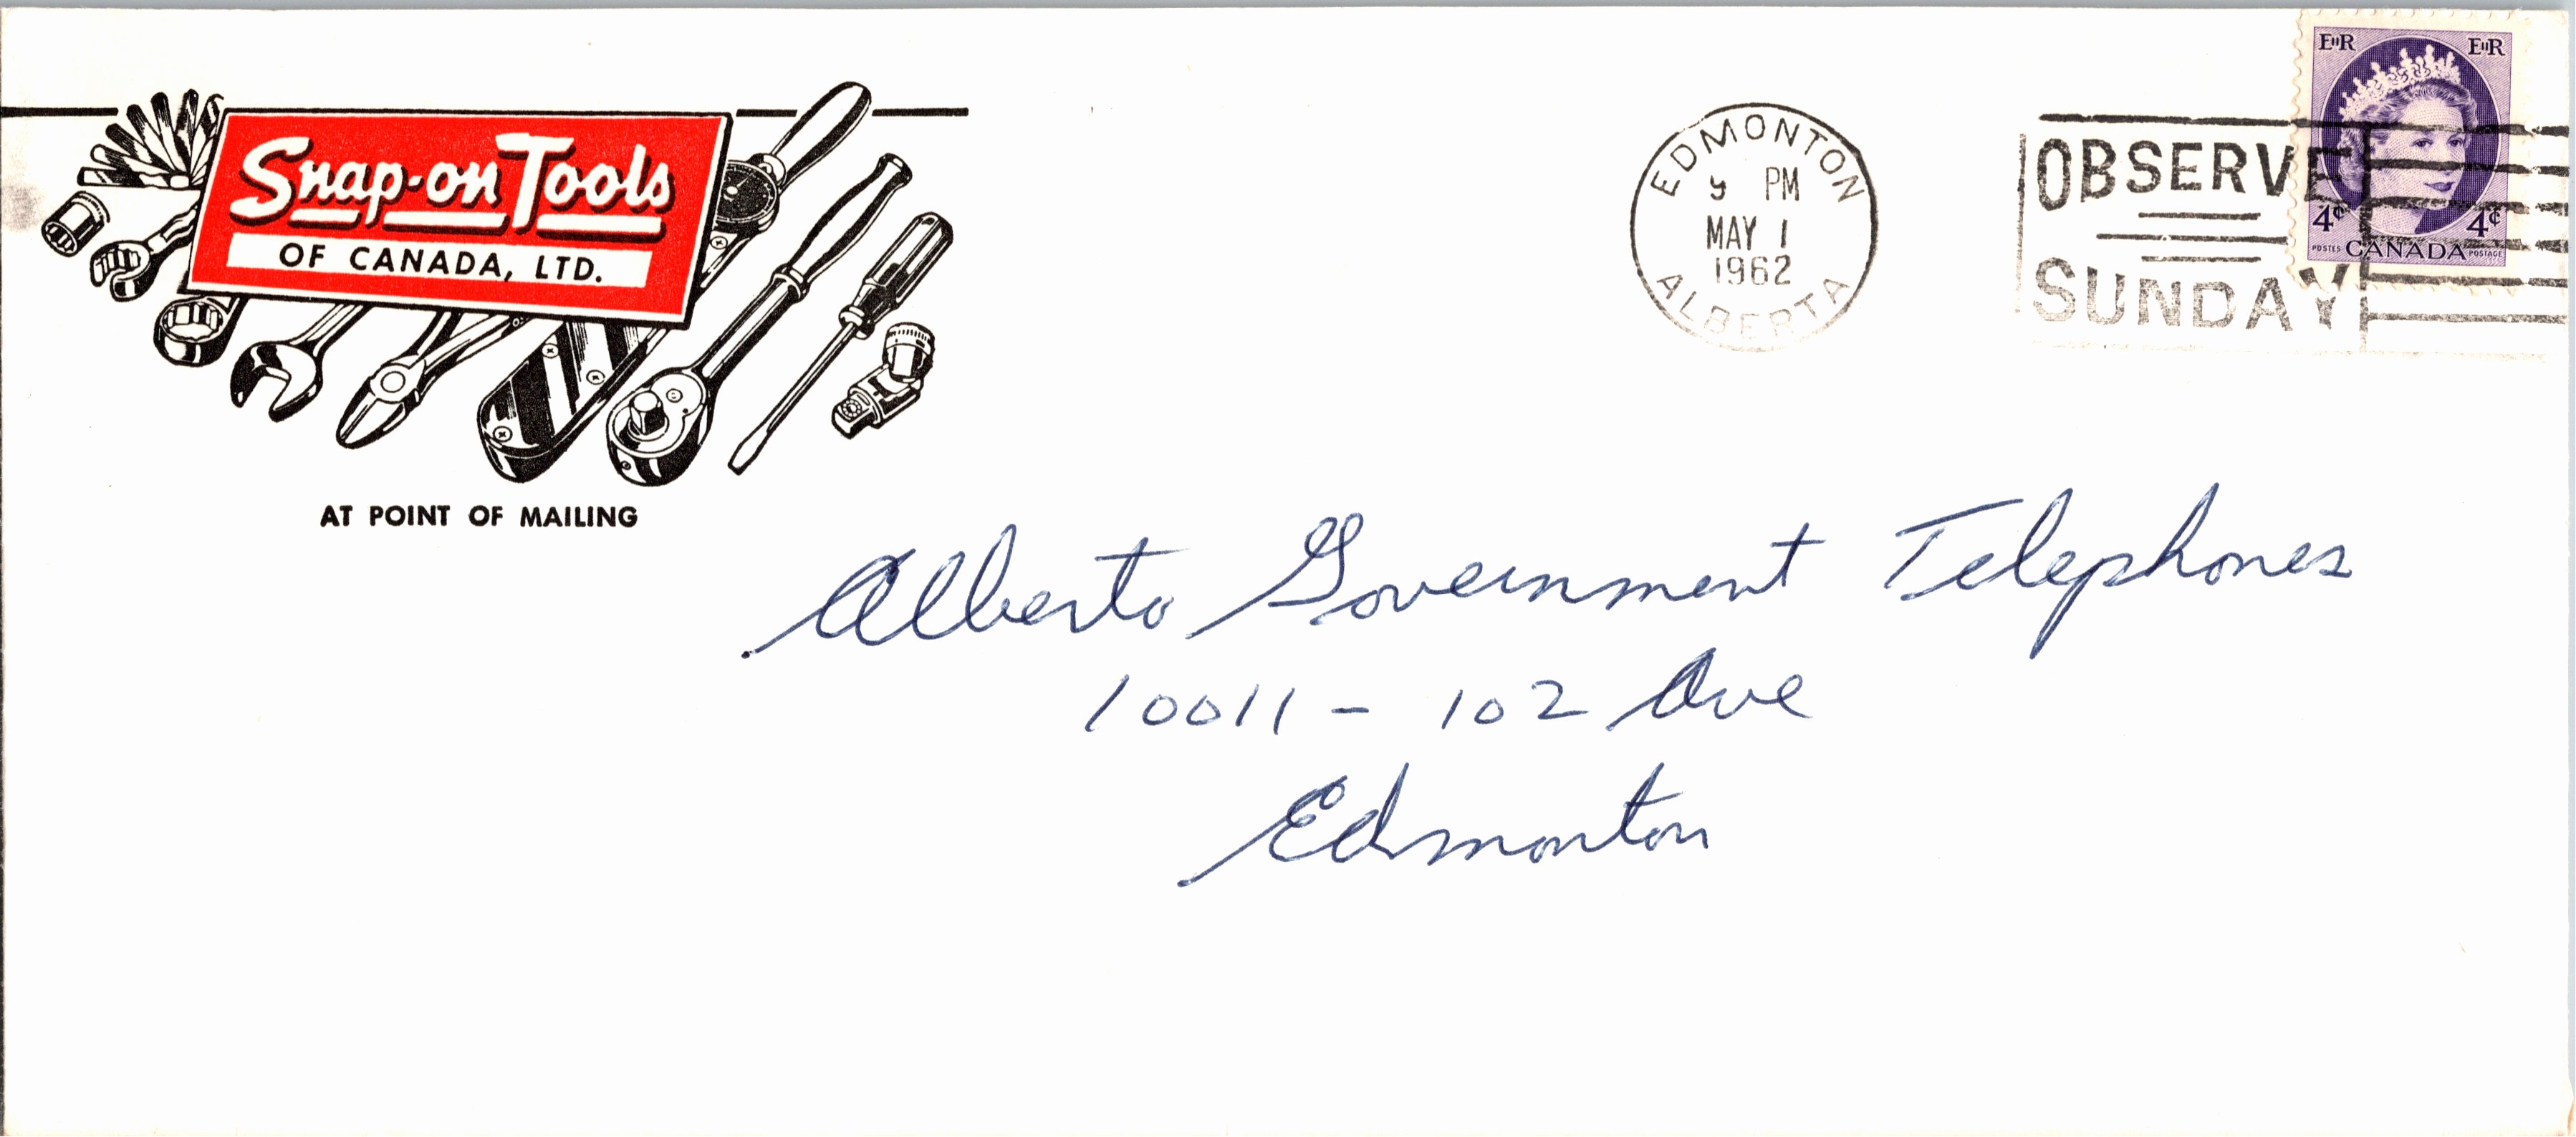 Snap-on Tools
OF CANADA, LTD.
AT POINT OF MAILING
EDMONTON
PM
MAY 1
1962
ALBERTA
OBSERVE
SUNDAY
EIIR EIIR
4¢ 4¢
POSTES CANADA POSTAGE
Alberta Government Telephones
10011 - 102 Ave
Edmonton